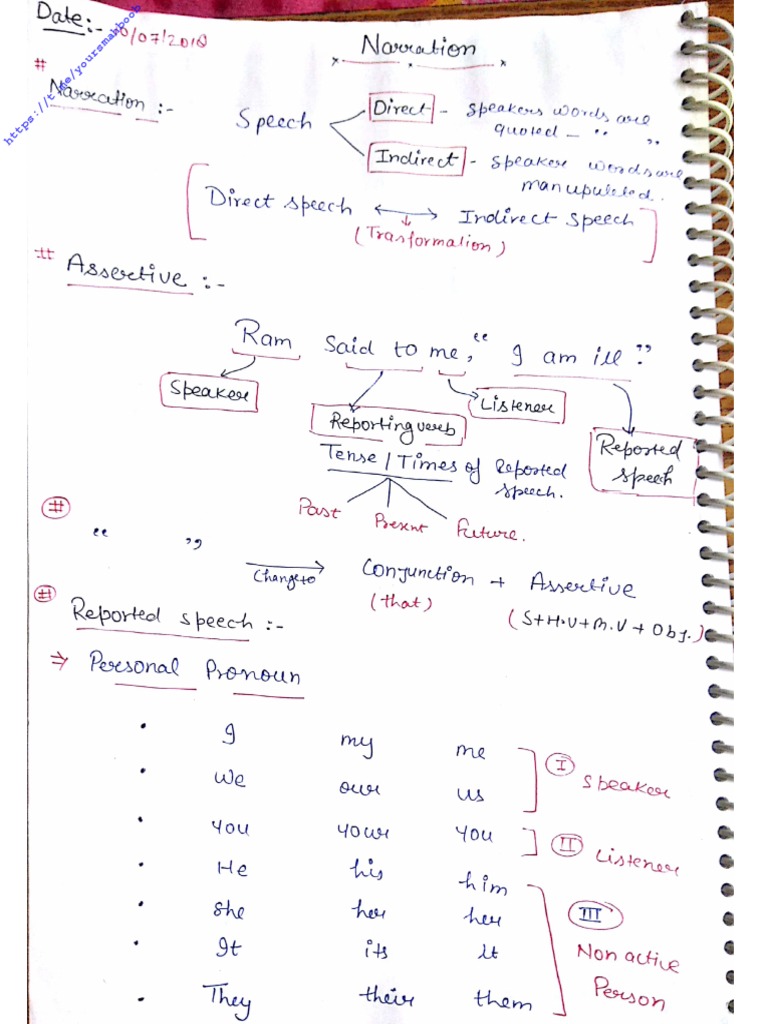 Date:-
/07/2018
https://t.me/yoursmahboob
Narration
# Narration :-
Speech
Direct - speakers words are quoted - “ ”
Indirect - speaker words are manupuleted.
Direct speech ↔ Indirect speech
(Trasformation)
# Assertive :-
Ram said to me, “I am ill.”
Speaker
Reporting verb
Listener
Reported speech
Tense / Times of Reported speech.
Past Present Future.
# “ ” Change to → Conjunction + Assertive
(that) (S+H.V+M.V+Obj.)
# Reported speech :-
⇒ Personal Pronoun
• I my me
• We our us
I Speaker
• You your you
II Listener
• He his him
• She her her
• It its it
• They their them
III Non active Person